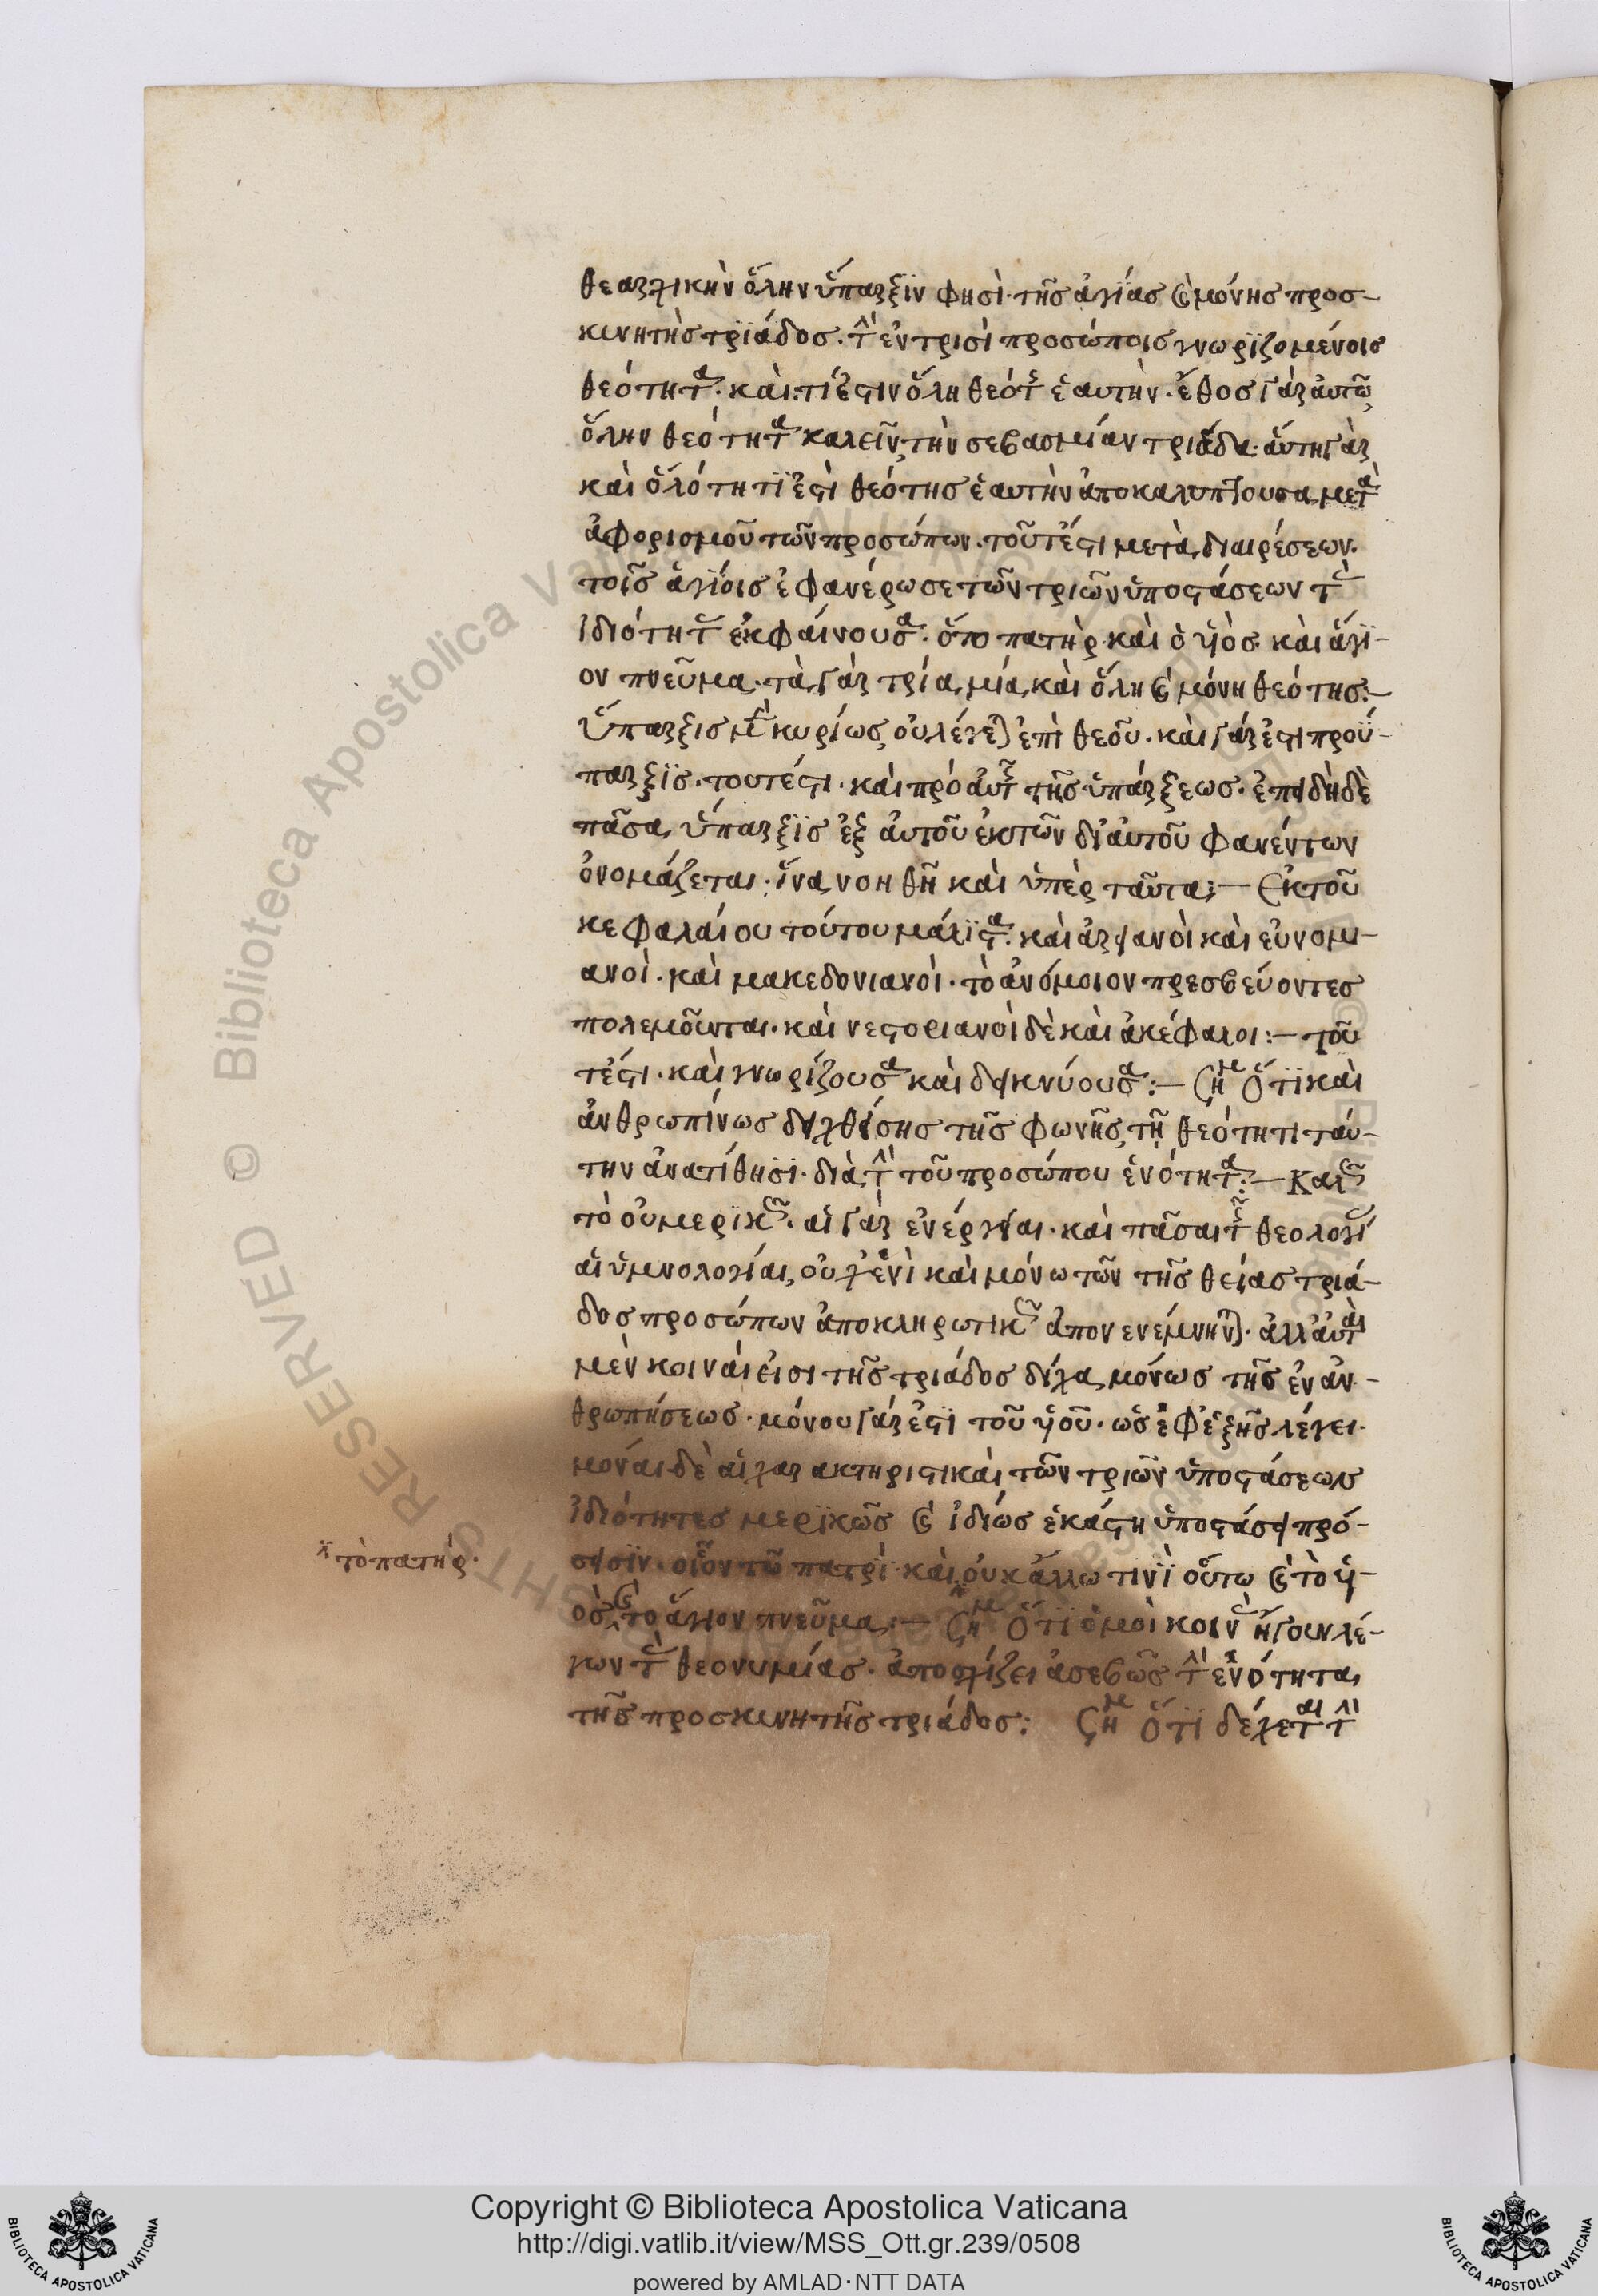 θεαρχικὴν ὅλην ὕπαρξϊν φησὶ τῆς ἁγίας καὶ μόνης προσ-
κυνητῆς τρϊάδος. τὴν ἐν τρισὶ προσώποις γνωρϊζομένοις
θεότητα. καὶ τί ἐστιν ὅλη θεότης ἑαυτὴν. ἔθος γὰρ αὐτῶ,
ὅλην θεότητα καλεῖν, τὴν σεβασμίαν τριάδα· αὕτη γὰρ
καὶ ὁλότητϊ ἐστὶ θεότης ἑαυτὴν ἀποκαλυπτουσα, μετὰ
ἀφορισμοῦ τῶν προσώπων. τοῦτέστι μετὰ, διαιρέσεων.
τοῖς ἁγίοις ἐφανέρωσε τῶν τριῶν ὑποστάσεων τὰς
ἰδιότητας ἐκφαίνουσα. ὅπο πατὴρ καὶ ὁ υἱὸς καὶ ἅγϊ-
ον πνεῦμα. τὰ γὰρ τρία, μία, καὶ ὅλη καὶ μόνη θεότης:-
Ὕπαρξις μὲν κυρίως, οὐ λέγεται ἐπὶ θεοῦ. καὶ γάρ ἐστι προΰ-
παρξϊς. τουτέστι. καὶ πρό αὐτῆς τῆς ὑπάρξεως. ἐπειδὴ δὲ
πᾶσα, ὕπαρξϊς ἐξ αὐτοῦ ἐκ τῶν δι αὐτοῦ φανέντων
ὀνομάζεται· ἵνα, νοηθῆ καὶ ὑπὲρ ταῦτα:- Ἐκ τοῦ
κεφαλαίου τούτου μάλϊστα. καὶ ἀρειανοὶ καὶ εὐνομι-
ανοὶ. καὶ μακεδονιανοὶ. τὸ ἀνόμοιον πρεσβεύοντες
πολεμοῦνται. καὶ νεστοριανοὶ δὲ καὶ ἀκέφαλοι:- τοῦ
τέστι. καὶ γνωρίζουσα καὶ δεικνύουσα:- Σημ Ὅτϊ καὶ
ἀνθρωπίνως δειχθείσης τῆς φωνῆς, τῆ θεότητι ταύ-
την ἀνατίθησϊ. διὰ, τὴν τοῦ προσώπου ἑνότητα:- Καλῶς
τὸ οὐ μερϊκῶς. αἱ γὰρ ἐνέργειαι. καὶ πᾶσαι τῆς θεολογίας
αἱ ὑμνολογίαι, οὐχ ἑνὶ καὶ μόνω τῶν τῆς θείας τριά-
δος προσώπων ἀποκληρωτικῶς ἀπονενέμηνται. ἀλλ αὐταὶ
μὲν κοιναί εἰσι τῆς τριάδος δίχα, μόνως τῆς ἐν ἀν-
θρωπήσεως. μόνου γάρ ἐστϊ τοῦ υἱοῦ. ὡς ἐφ ἑξῆς λέγει.
μόναι δὲ αἱ χαρακτηριστικαὶ τῶν τριῶν ὑποστάσεων
ἰδιότητες μερϊκῶς καὶ ἰδίως ἑκάστη ὑποστάσει πρό-
σεισϊν. οἷον τῶ πατρϊ καὶ οὐκ ἄλλω τινϊ οὕτω καὶ τὸ υἱ-
ὸς, καὶ το ἅγιον πνεῦμα:- Σημ Ὅτϊ ὁμοὶ κοινὰς ἤγουν λέ-
γων τὰς θεονυμίας. ἀποσχίζει ἀσεβῶς τὴν ἑνότητα,
τῆς προσκυνητῆς τριάδος: Σημ Ὅτϊ δέχεται τὴν
τὸ πατήρ.
Copyright © Biblioteca Apostolica Vaticana
http://digi.vatlib.it/view/MSS_Ott.gr.239/0508
powered by AMLAD·NTT DATA